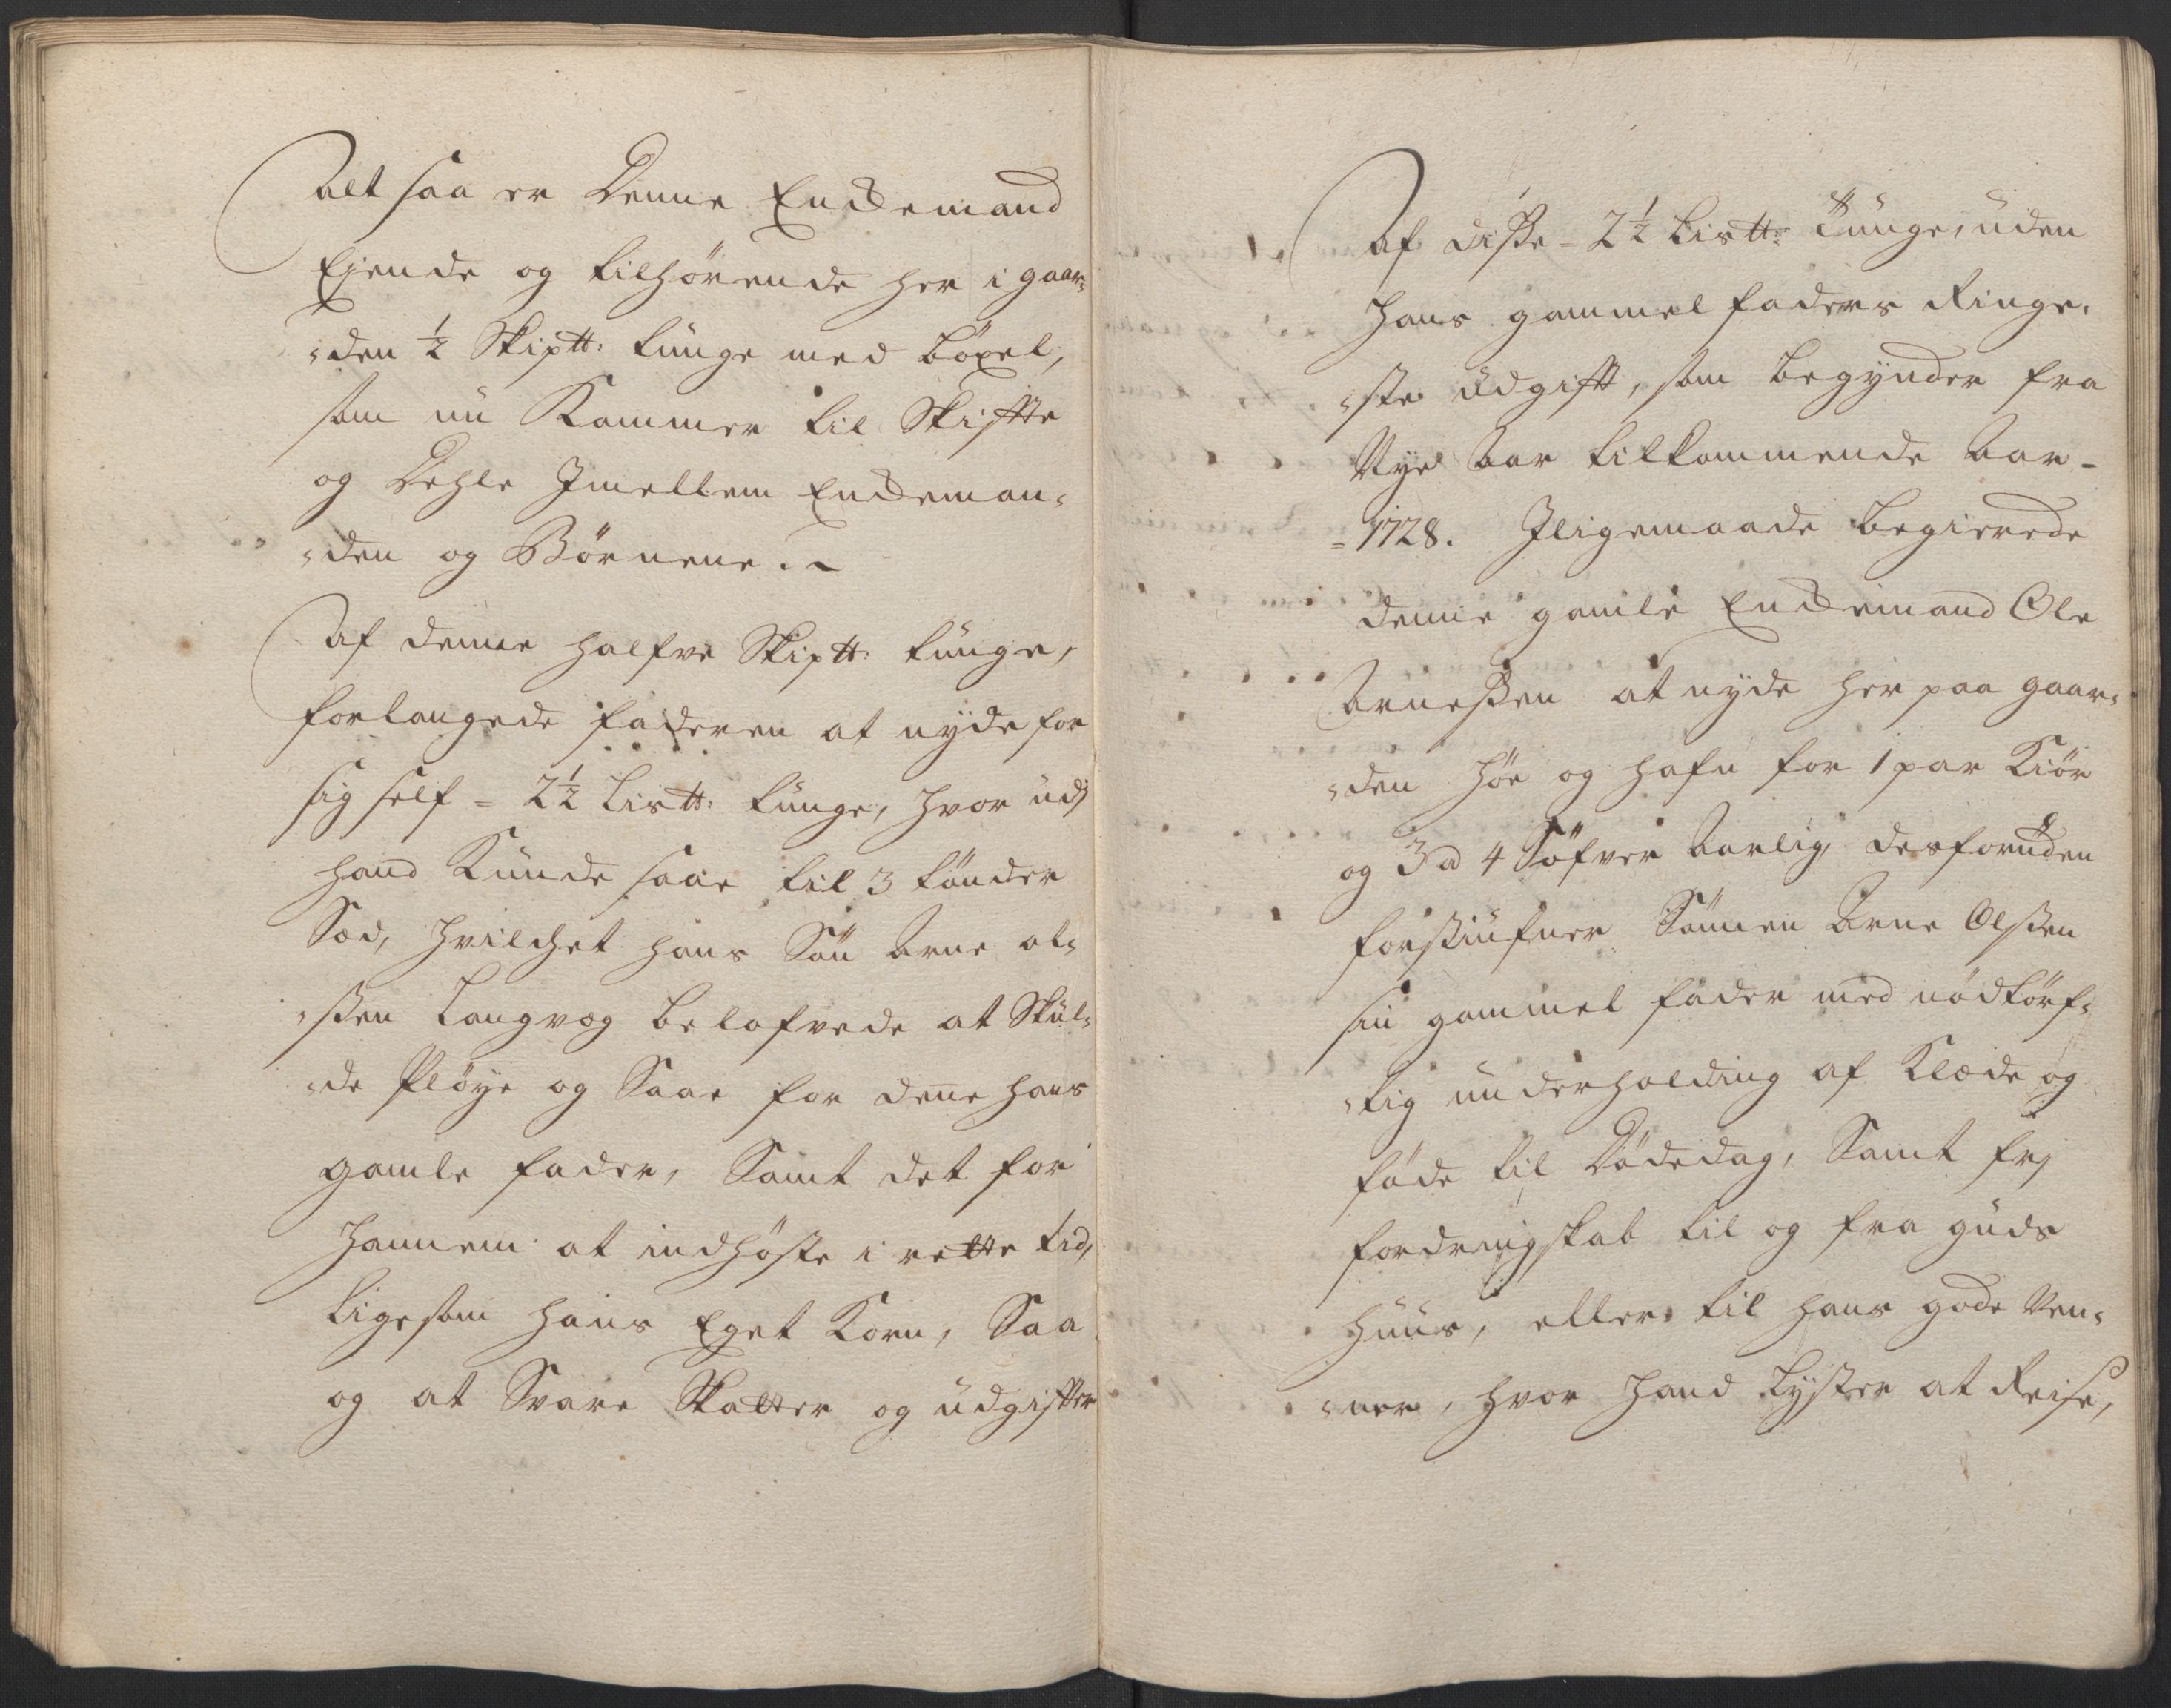 Alt saa er Denne Enckemand
Ejende og tilhørende her i gaar-
-den ½ Skiptt: tunge med böxel,
som nu Kommer til Skiftte
og Dehle Imellem Enckeman-
-den og Börnene. ~
Af denne halfve Skiptt: tunge,
forlangede faderen at nyde for
sig self = 2½ Listt: tunge, hvor udj
hand Kunde saae til 3 tönder
Sæd, hvilchet hans Sön Arne ol-
-ssen Langvog belofvede at Skul-
-de Pløye og Saae for den̄e hans
gamle fader, Samt det for
hannem at indhöste i rette tid,
Ligesom hans Eget Korn, Saa
og at Svare Skatter og udgifter
Af disse = 2½ Listt: Tunge, uden
hans gammel faders Ringe-
-ste udgift, som begynder fra
Nye Aar tilkommende Aar =
= 1728. Iligemaade begierede
denne gamle Enckemand Ole
Arnessen at nyde her paa gaar-
-den höe og hafn for 1 par Kiör
og 3 a 4 Söfver Aarlig, desforuden
forssiufner Sönnen Arne Olssen
sin gammel fader med nödtörf-
-tig underholding af Klæde og
föde til Dödedag, Samt frj
fordringskab til og fra guds
huus, eller til hans gode Ven-
-ner, hvor hand Lyster at Reise,